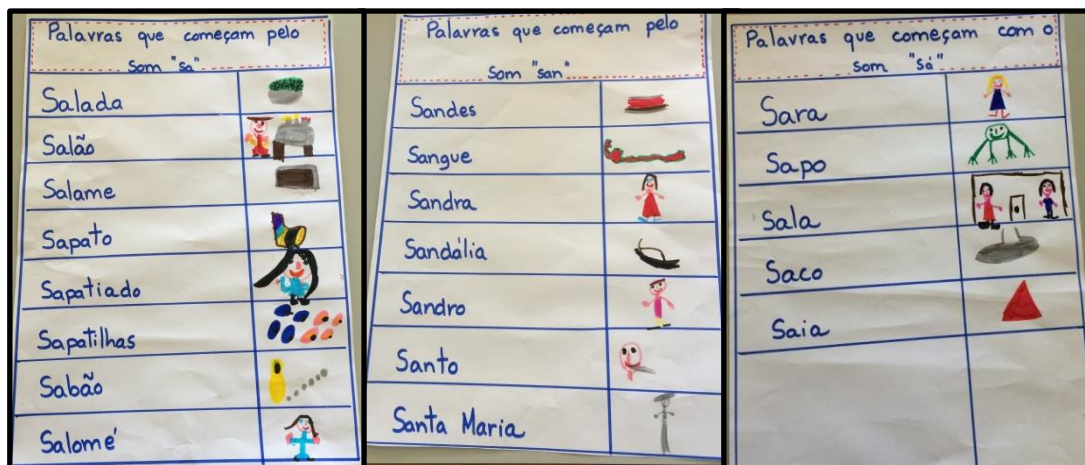 Palavras que começam pelo
som "sa"
Salada
Salão
Salame
Sapato
Sapatiado
Sapatilhas
Sabão
Salomé
Palavras que começam pelo
som "san"
Sandes
Sangue
Sandra
Sandália
Sandro
Santo
Santa Maria
Palavras que começam com o
som "sá"
Sara
Sapo
Sala
Saco
Saia